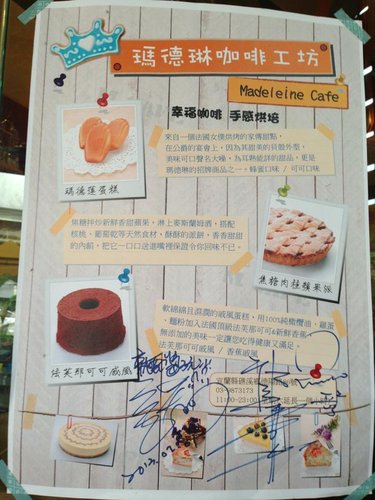 瑪德琳咖啡工坊
Madeleine Cafe
幸福咖啡 手感烘培
來自一個法國女僕烘烤的家傳甜點，
在公爵的宴會上，因為其甜美的貝殼外型，
美味可口聲名大噪，為耳熟能詳的甜品，更是
瑪德琳的招牌商品之一。蜂蜜口味 / 可可口味
瑪德蓮蛋糕
焦糖拌炒新鮮香甜蘋果，淋上麥斯蘭姆酒，搭配
核桃、葡萄乾等天然食材，酥酥的派餅，香香甜甜
的內餡，把它一口口送進嘴裡保證令你回味不已。
焦糖肉桂蘋果派
軟綿綿且濕潤的戚風蛋糕，用100%純橄欖油、雞蛋
、麵粉加入法國頂級法芙那可可&新鮮香蕉
無添加的美味一定讓您吃得健康又滿足。
法芙那可可戚風 / 香蕉戚風
法芙那可可戚風
宜蘭縣礁溪鄉德陽
11:00-23:00